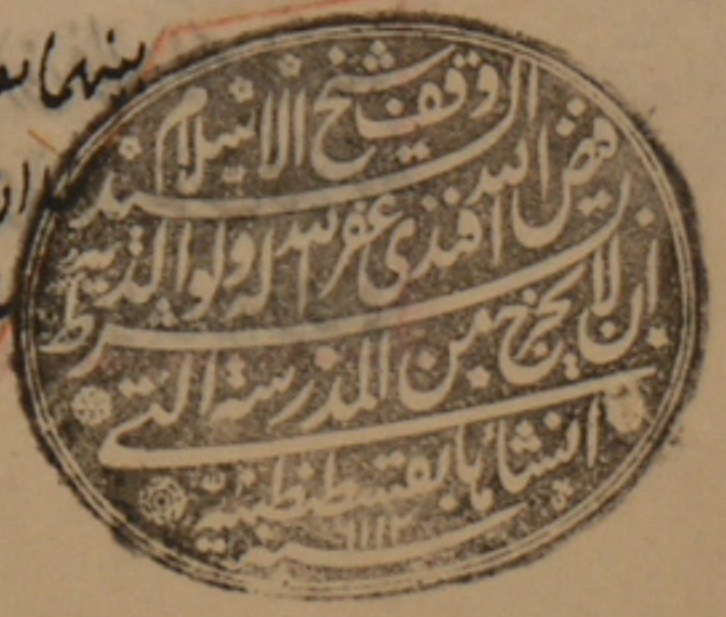 وقف شيخ الاسلام السيد
فيض الله افندى غفر الله له ولوالديه
بشرط ان لا يخرج من المدرسة التى
انشاها بقسطنطينية
سنة ١١١٢
بينهما